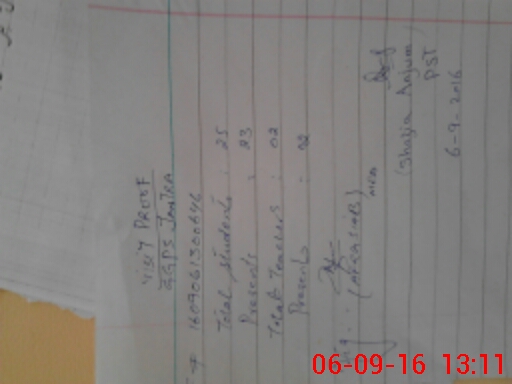 VISIT PROOF
GGPS
# 1609061300646
Total Students : 25
Presents : 23
Total Teachers : 02
Presents : 02
(Shazia Anjum)
PST
6-9-2016
06-09-16 13:11